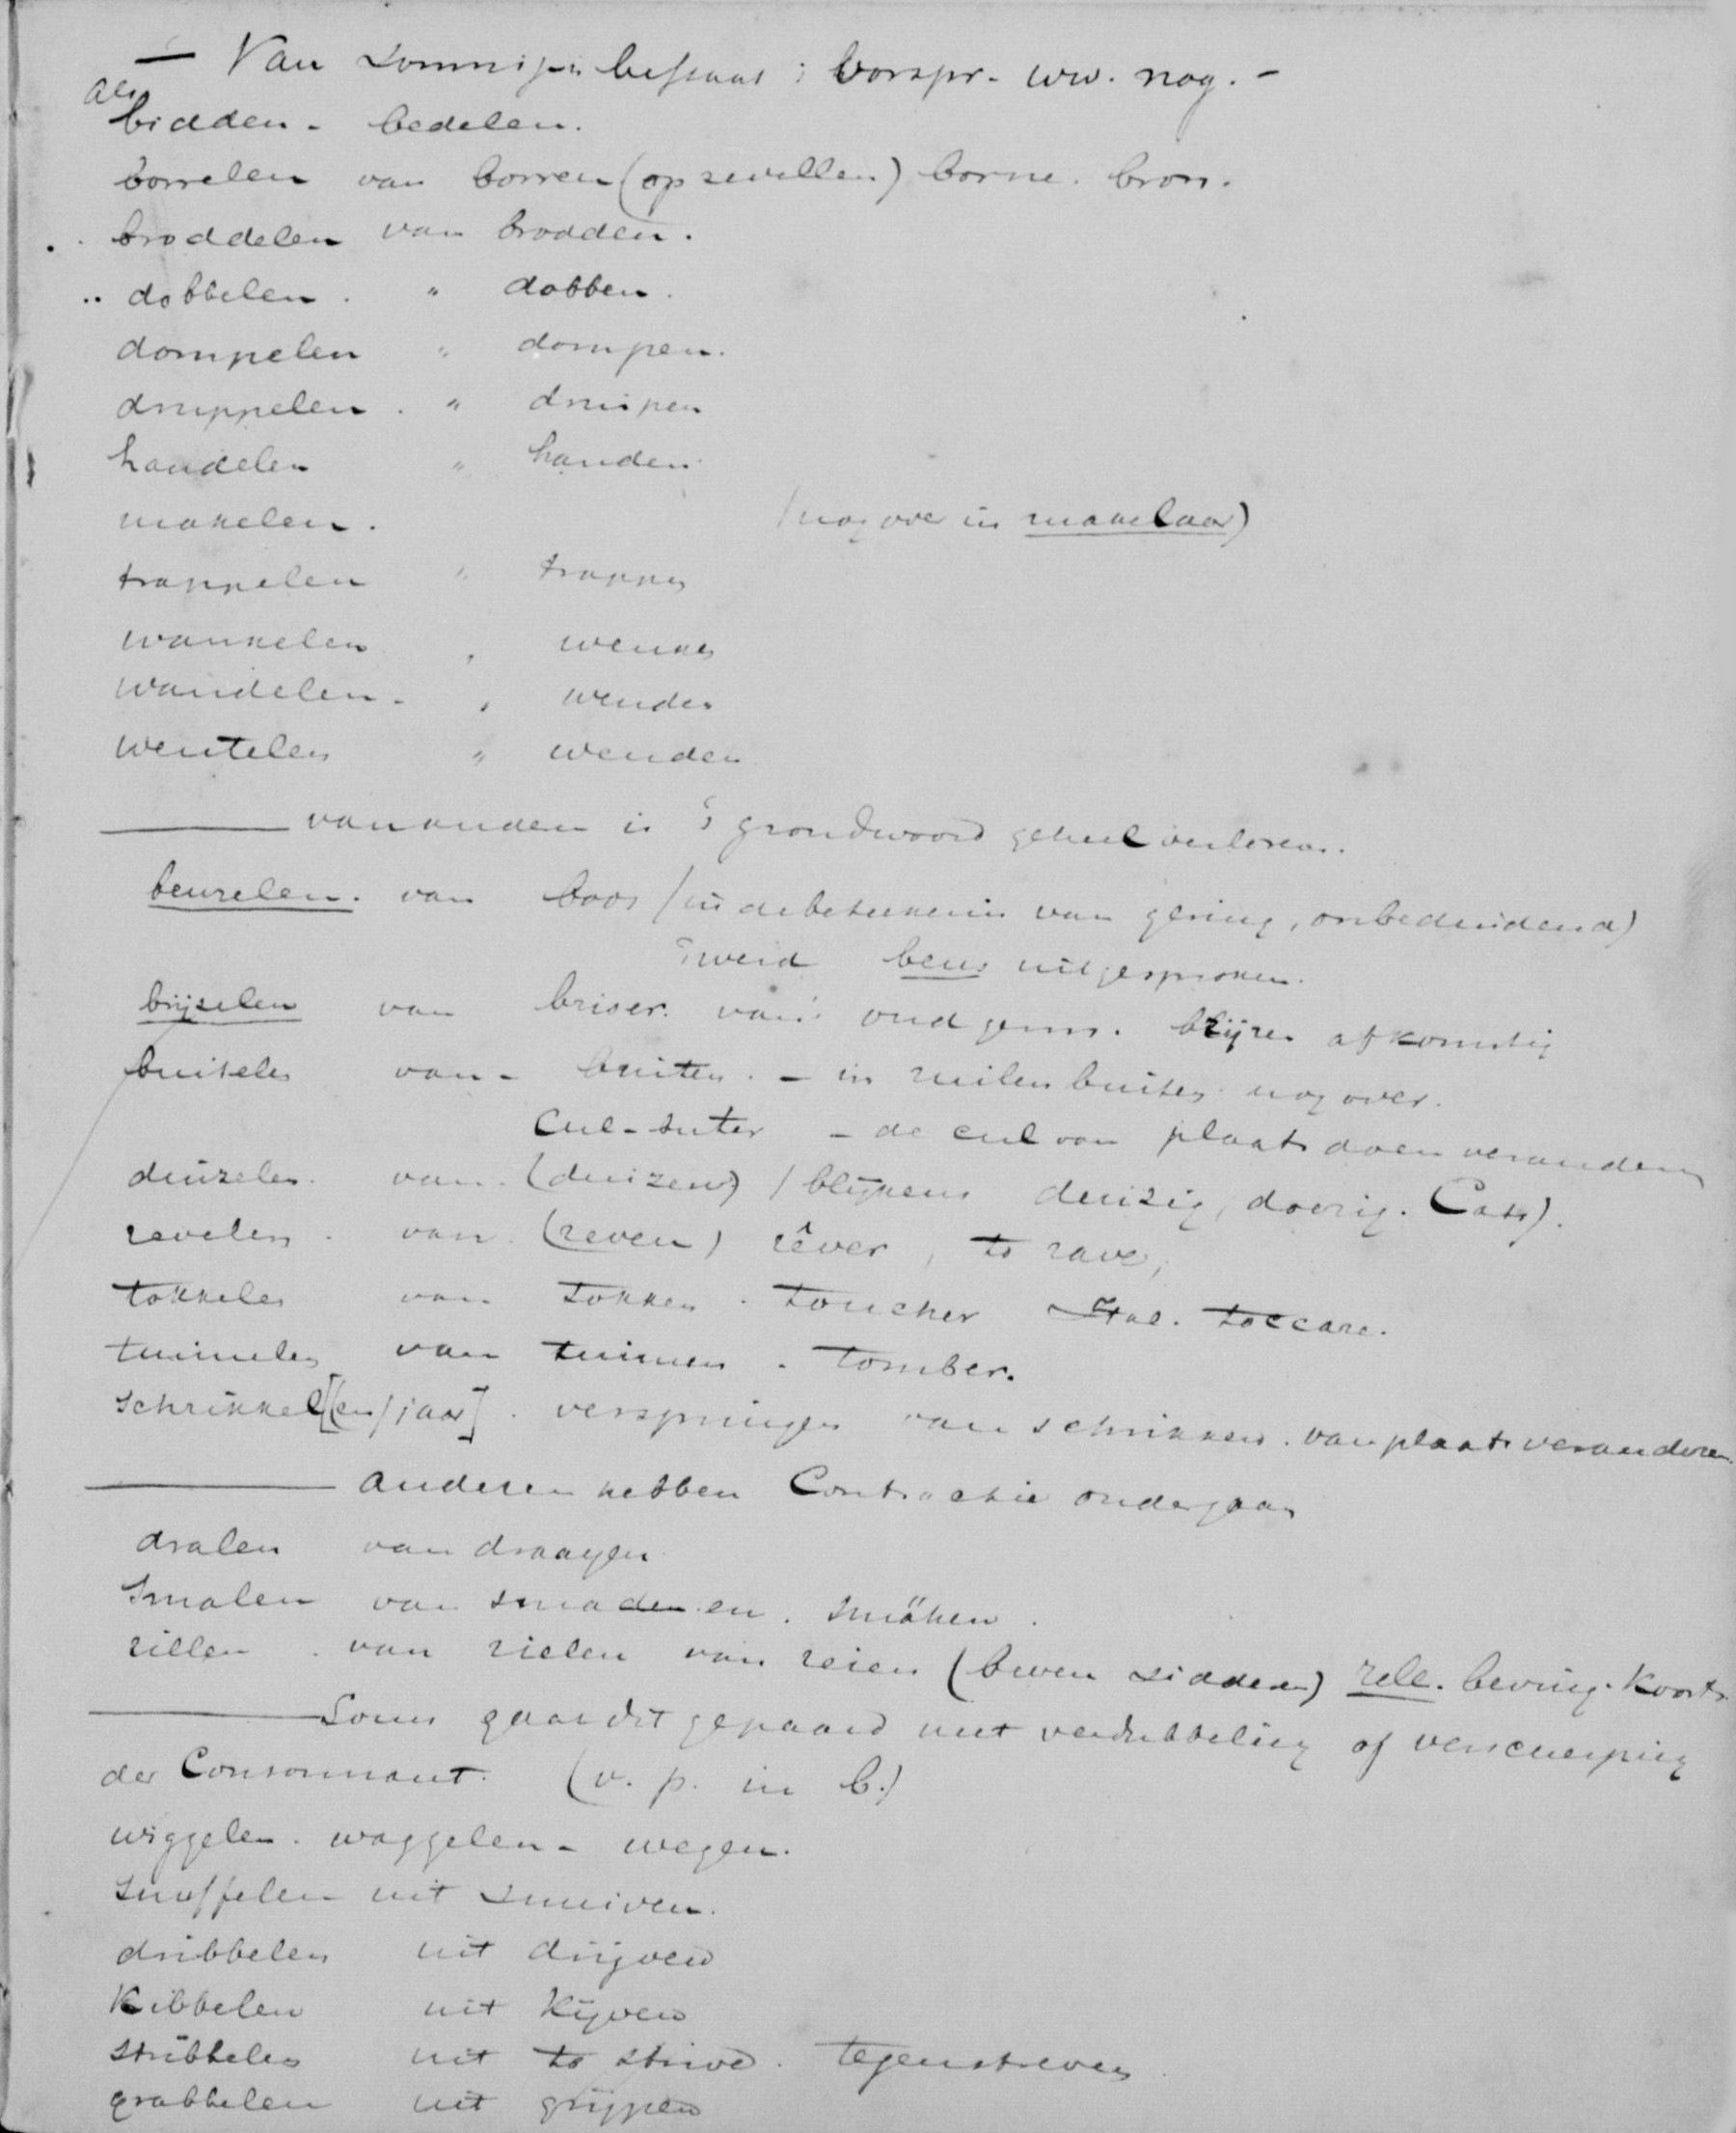 — Van sommigen bestaat 't oorspr. ww. nog. –
als
bidden - bedelen.
borrelen van borren (opzwellen) borne. bron.
broddelen van brodden.
dobbelen. " dobben.
dompelen " dompen.
druppelen. " druipen
handelen " handen
makelen. (nog over in makelaar)
trappelen " trappen
wankelen " wenken
wandelen - " wenden
wentelen " wenden
— van anderen is 't grondwoord geheel verloren.
beuzelen. van boos (in de beteekenis van gering, onbeduidend)
't werd beus uitgesproken.
brijzelen van briser. van 't oud germ. brijzen afkomstig
buitelen van - buiten. – in ruilenbuiten nog over.
Cul-buter – de cul van plaats doen veranderen
duizelen. van (duizen) (blijkens duizig, doezig. Cats).
revelen. van (reven) rêver, to rave,
tokkelen van tokken. toucher Ital. toccare.
tuimelen van tuimen. tomber.
schrikkel[(en) jaar]. verspringen van schrikken. van plaats veranderen.
— anderen hebben Contractie ondergaan
dralen van draagen
smalen van smaden en. smähen.
rillen. van rielen van reien (beven sidderen) rele. beving. koorts.
— Soms gaat dit gepaard met verdubbeling of verscherping
der Consonnant. (v. p. in b.)
wiggelen. waggelen - wegen.
snuffelen uit snuiven.
dribbelen uit drijven
Kibbelen uit Kijven
stribbelen uit to strive. tegenstreven
grabbelen uit grijpen